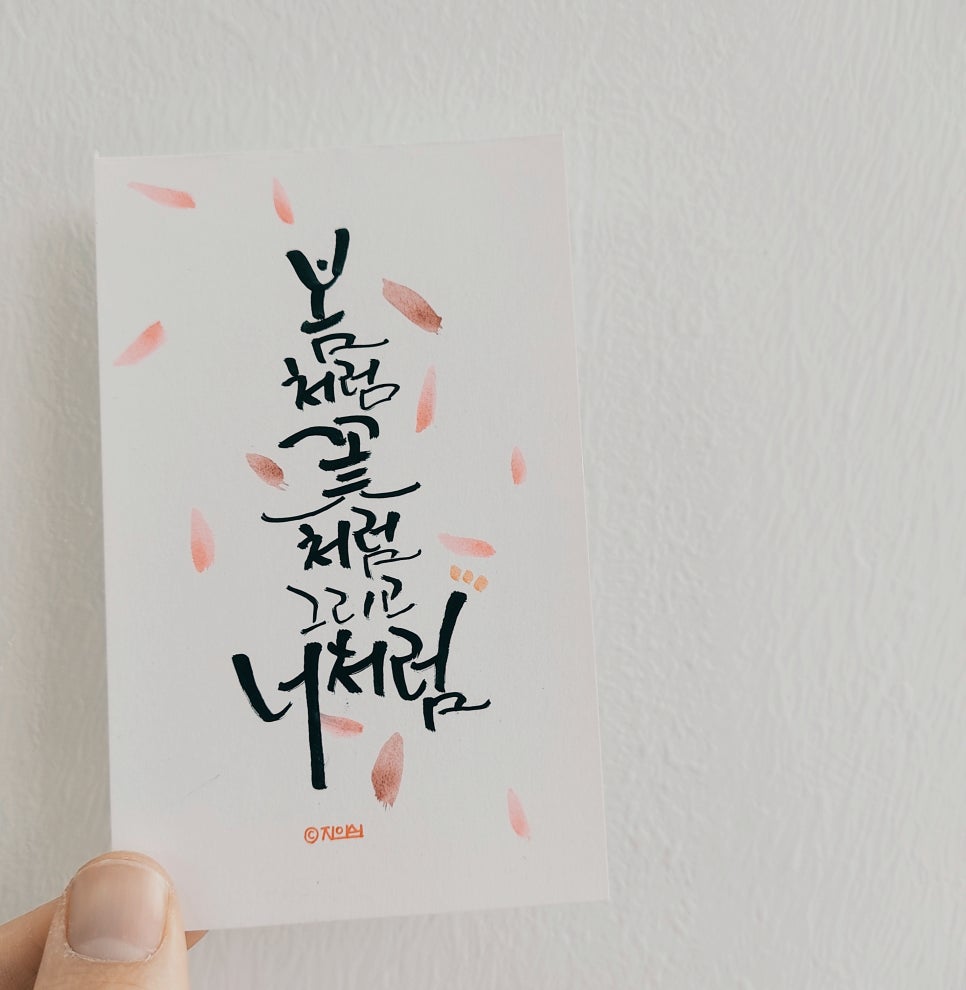 봄
처럼
꽃
처럼
그리고
너처럼